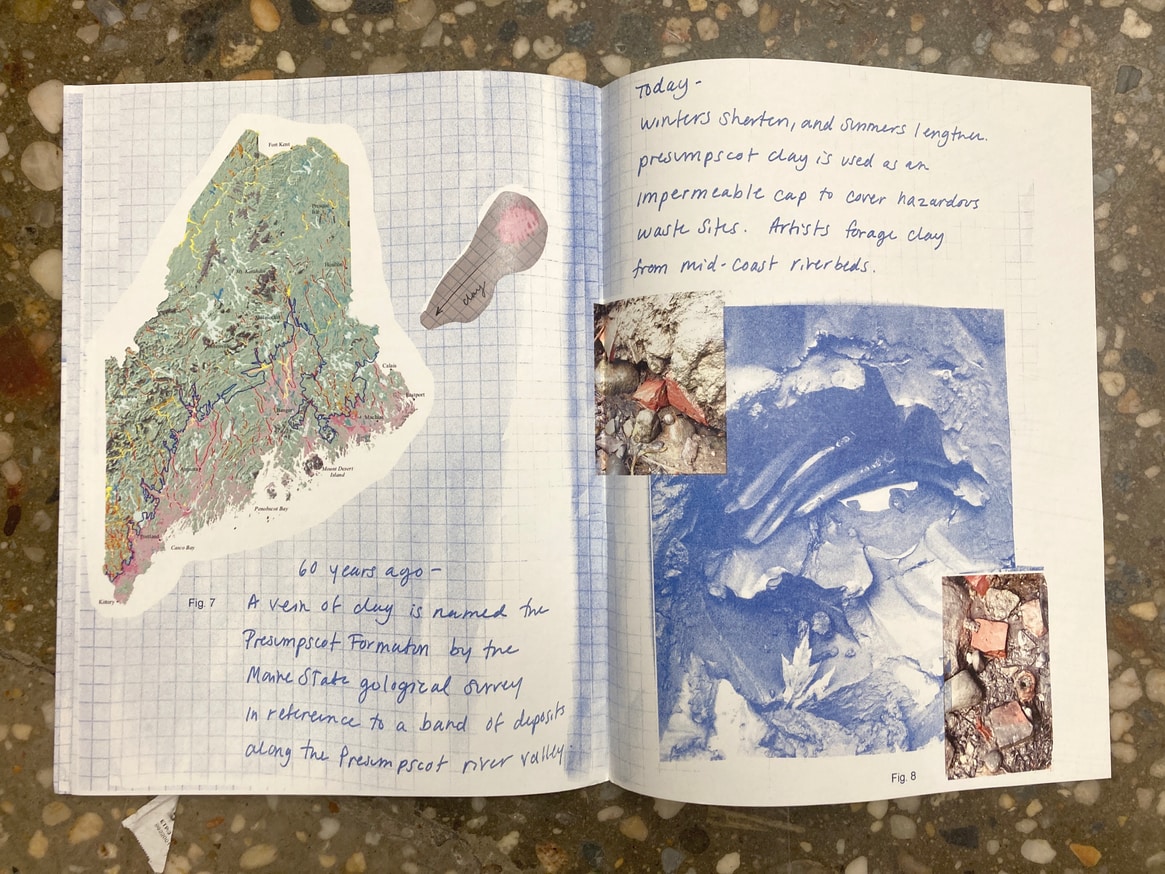 Fort Kent
Presque Isle
Mt. Katahdin
Houlton
Calais
Eastport
Bangor
Machias
Augusta
Mount Desert
Island
Penobscot Bay
Portland
Casco Bay
Kittery
clay
Fig. 7
60 years ago -
A vein of clay is named the
Presumpscot Formation by the
Maine State gological survey
in reference to a band of deposits
along the Presumpscot river valley.
Today -
winters shorten, and summers lengthen.
presumpscot clay is used as an
impermeable cap to cover hazardous
waste sites. Artists forage clay
from mid-coast riverbeds.
Fig. 8